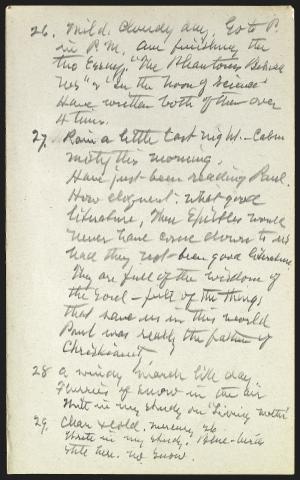 26. Mild, cloudy day. Go to P.
in P.M. Am finishing the
two Essays, "The Phantoms Behind
Us" & "In the Noon of Science"
Have written both of them over
4 times.
27. Rain a little last night. - Calm
misty this morning.
Have just been reading Paul.
How eloquent; what good
literature, Those Epistles would
never have come down to us
had they not been good literature.
They are full of the wisdom of
the soul - full of the things
that save us in this world
Paul was really the father of
Christianity.
28 A windy March like day.
Flurries of snow in the air
Write in my study on "Living matter"
29. Clear & cold, mercury 26
Write in my study. Blue-birds
still here. No snow.